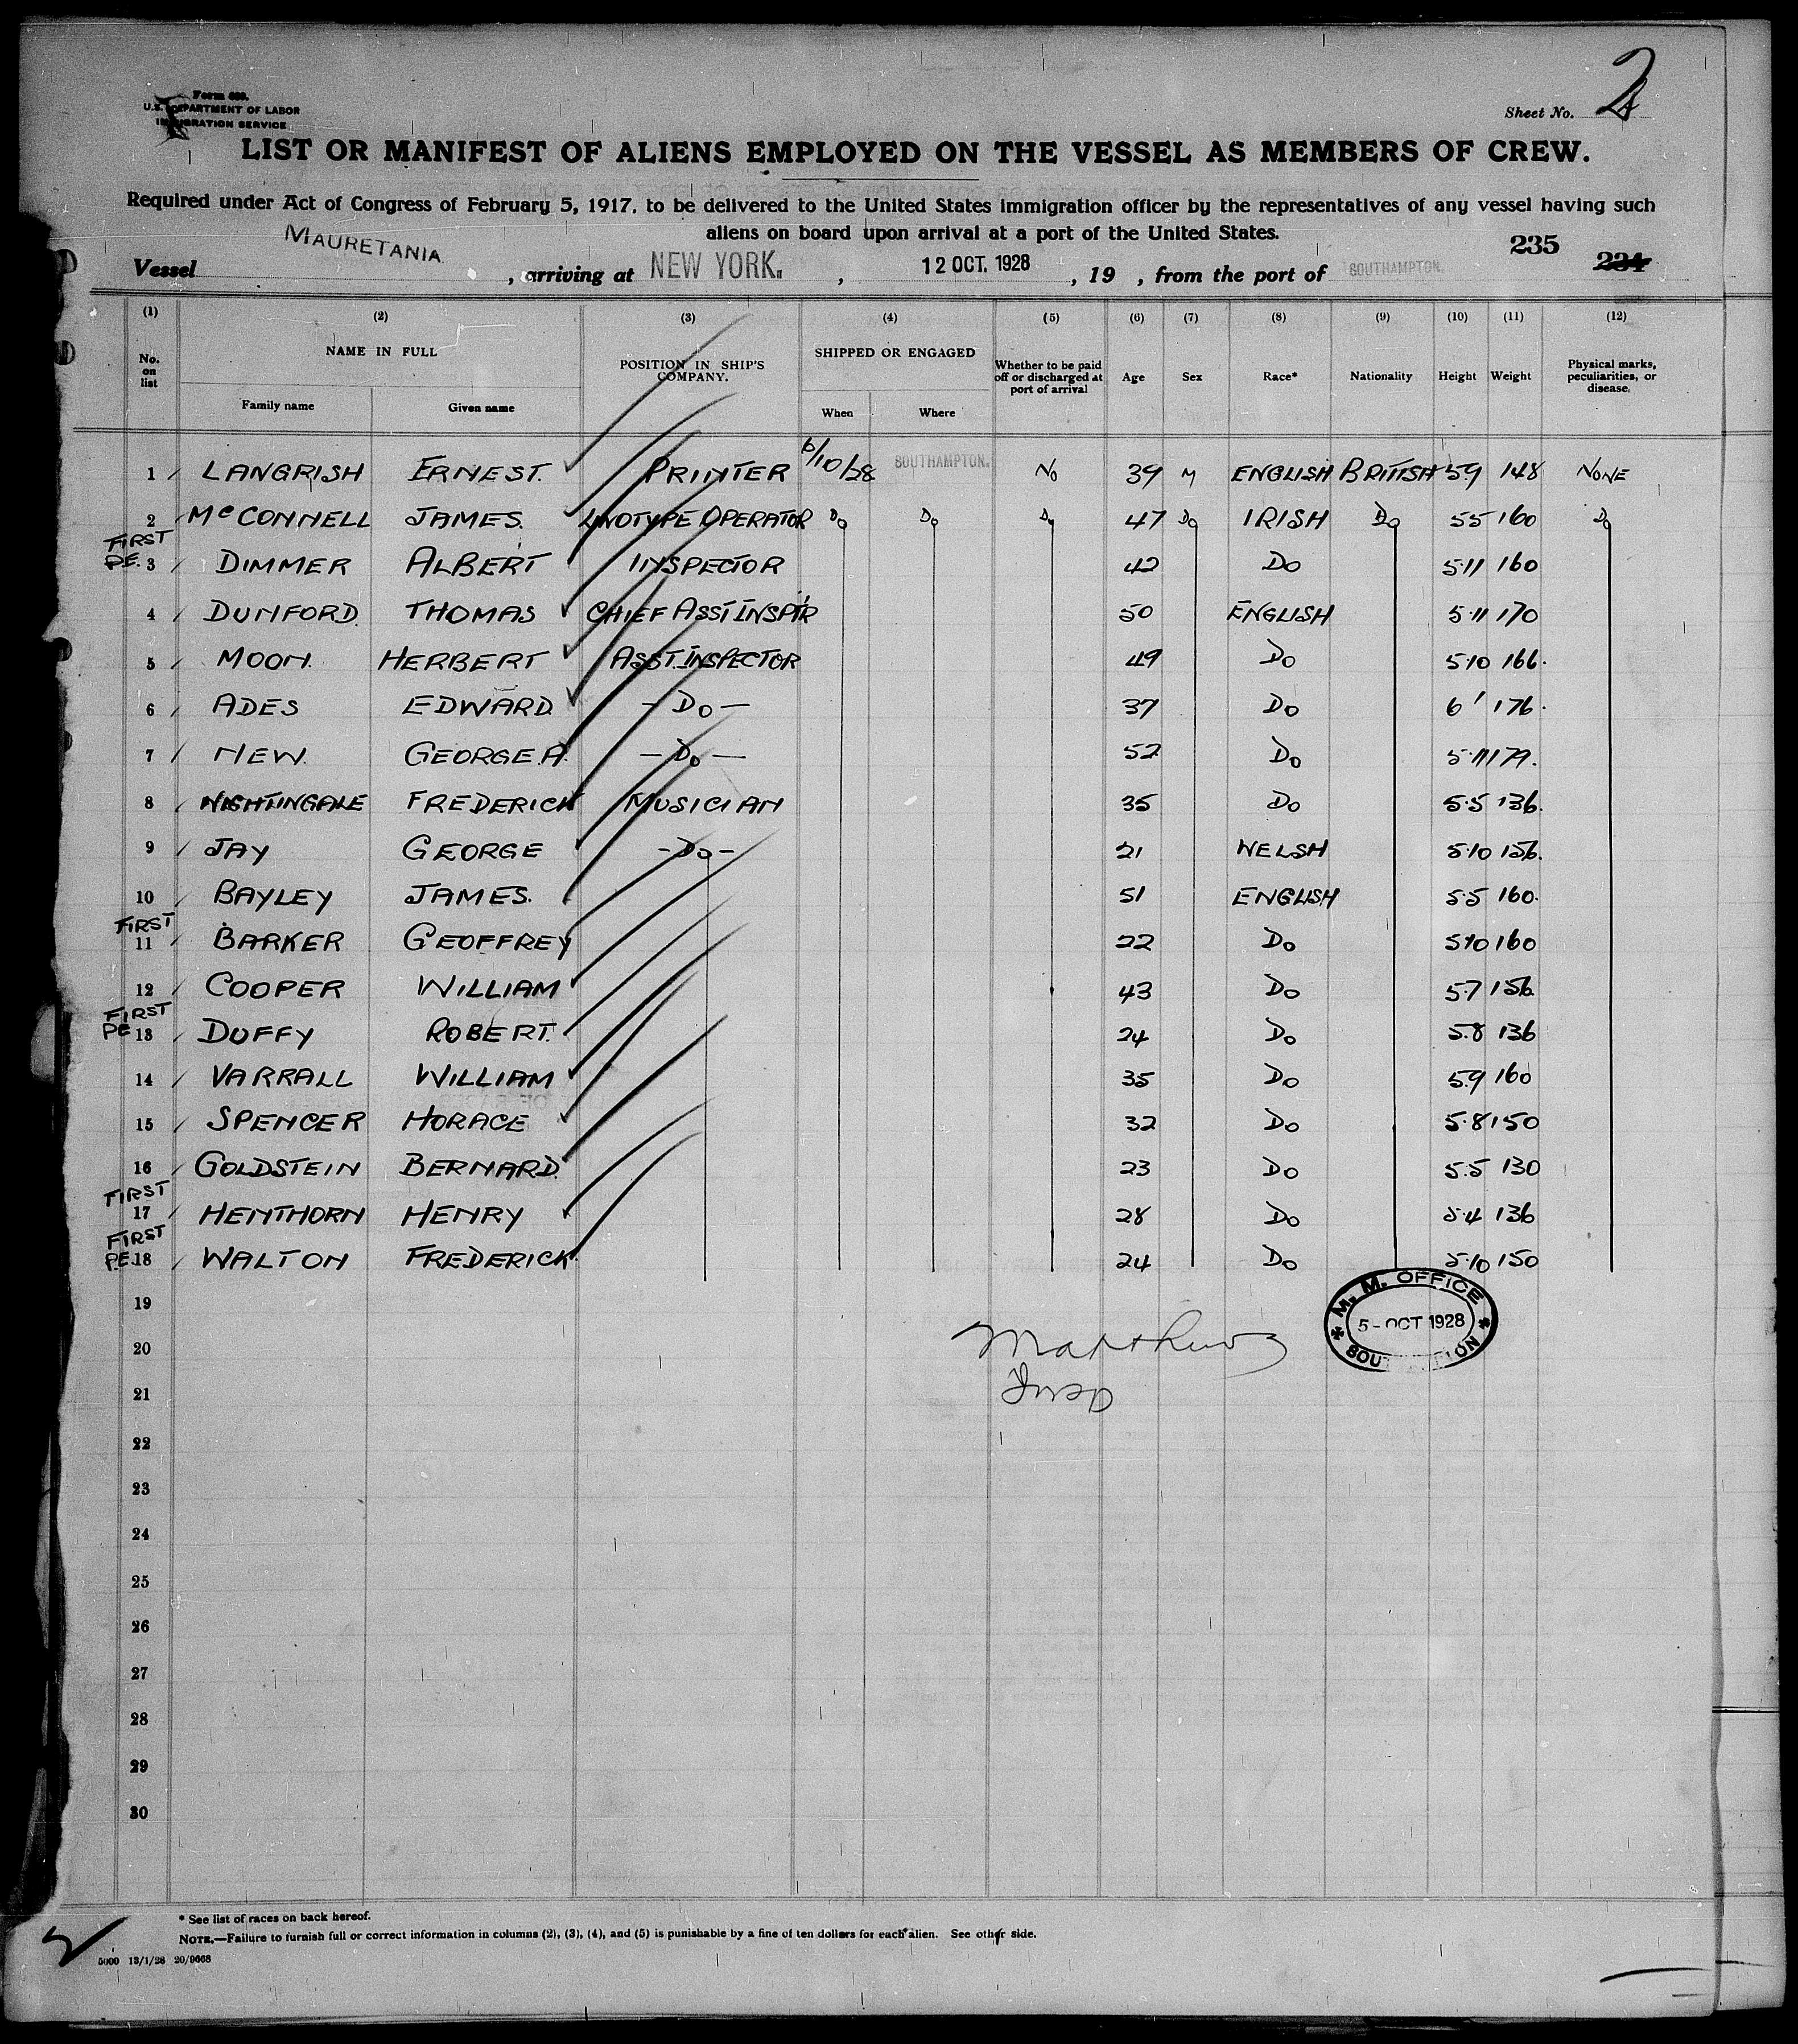 Form 689.
U.S. DEPARTMENT OF LABOR
IMMIGRATION SERVICE
Sheet No. 2
LIST OR MANIFEST OF ALIENS EMPLOYED ON THE VESSEL AS MEMBERS OF CREW.
Required under Act of Congress of February 5, 1917, to be delivered to the United States immigration officer by the representatives of any vessel having such
aliens on board upon arrival at a port of the United States.
235 234
Vessel MAURETANIA, arriving at NEW YORK., 12 OCT. 1928, 19 , from the port of SOUTHAMPTON.
(1) (2) (3) (4) (5) (6) (7) (8) (9) (10) (11) (12)
No. on list NAME IN FULL Family name Given name POSITION IN SHIP'S COMPANY. SHIPPED OR ENGAGED When Where Whether to be paid off or discharged at port of arrival Age Sex Race* Nationality Height Weight Physical marks, peculiarities, or disease.
1 LANGRISH ERNEST. PRINTER 6/10/28 SOUTHAMPTON. No 39 M ENGLISH BRITISH 5.9 148 NONE
2 McCONNELL JAMES. LINOTYPE OPERATOR Do Do Do 47 Do IRISH Do 5.5 160 Do
FIRST P.E. 3 DIMMER ALBERT INSPECTOR 42 Do 5.11 160
4 DUNFORD. THOMAS CHIEF ASST INSPT'R 50 ENGLISH 5.11 170
5 MOON. HERBERT ASST. INSPECTOR 49 Do 5.10 166.
6 ADES EDWARD. - Do - 37 Do 6' 176.
7 NEW. GEORGE.A. - Do - 52 Do 5.11 179.
8 NIGHTINGALE FREDERICK MUSICIAN 35 Do 5.5 136.
9 JAY GEORGE - Do - 21 WELSH 5.10 156.
10 BAYLEY JAMES. 51 ENGLISH 5.5 160.
FIRST 11 BARKER GEOFFREY 22 Do 5.10 160
12 COOPER WILLIAM 43 Do 5.7 156.
FIRST PE 13 DUFFY ROBERT. 24 Do 5.8 136
14 VARRALL WILLIAM 35 Do 5.9 160
15 SPENCER HORACE 32 Do 5.8 150
16 GOLDSTEIN BERNARD. 23 Do 5.5 130
FIRST 17 HENTHORN HENRY 28 Do 5.4 136
FIRST P.E. 18 WALTON FREDERICK. 24 Do 5.10 150
19
M. M. OFFICE
5 - OCT 1928
20 Matthews
21
22
23
24
25
26
27
28
29
30
* See list of races on back hereof.
NOTE.—Failure to furnish full or correct information in columns (2), (3), (4), and (5) is punishable by a fine of ten dollars for each alien. See other side.
5000 13/1/28 20/9668